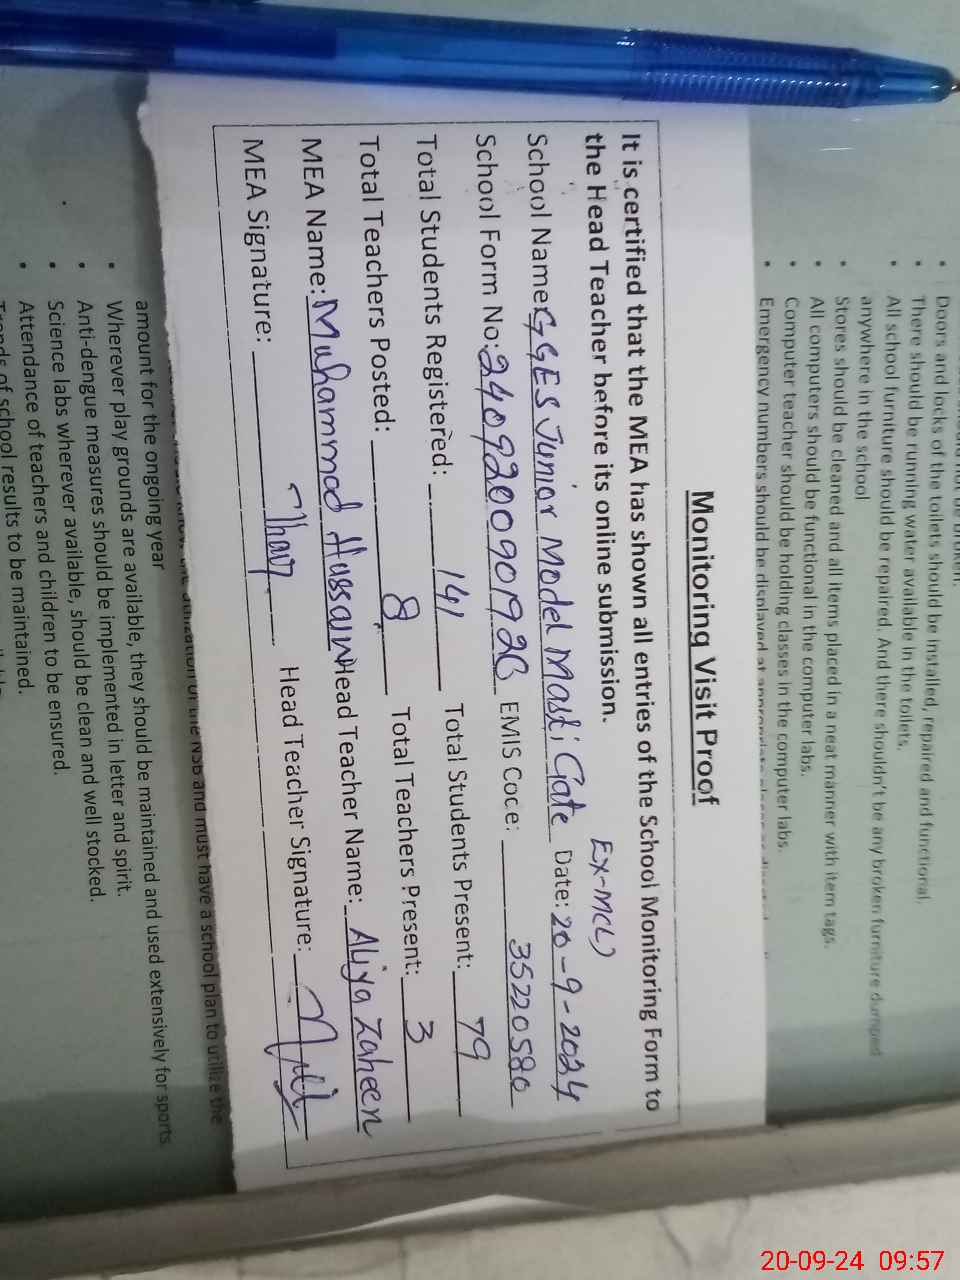 Doors and locks of the toilets should be installed, repaired and functional.
There should be running water available in the toilets.
All school furniture should be repaired. And there shouldn't be any broken furniture dumped
anywhere in the school
Stores should be cleaned and all items placed in a neat manner with item tags.
All computers should be functional in the computer labs.
Computer teacher should be holding classes in the computer labs.
Emergency numbers should be displayed at appropriate
Monitoring Visit Proof
It is certified that the MEA has shown all entries of the School Monitoring Form to
the Head Teacher before its online submission.
EX-MCL)
School Name: GGES Junior Model Masti Gate Date: 20-9-2024
School Form No: EMIS Coce: 35220580
Total Students Registered: 141 Total Students Present: 79
Total Teachers Posted: 8 Total Teachers Present: 3
MEA Name: Muhammad Hussain Head Teacher Name: Aliya Zaheen
MEA Signature: Head Teacher Signature:
NSB and must have a school plan to utilize the
amount for the ongoing year
Wherever play grounds are available, they should be maintained and used extensively for sports
Anti-dengue measures should be implemented in letter and spirit.
Science labs wherever available, should be clean and well stocked.
Attendance of teachers and children to be ensured.
Trends of school results to be maintained.
20-09-24 09:57